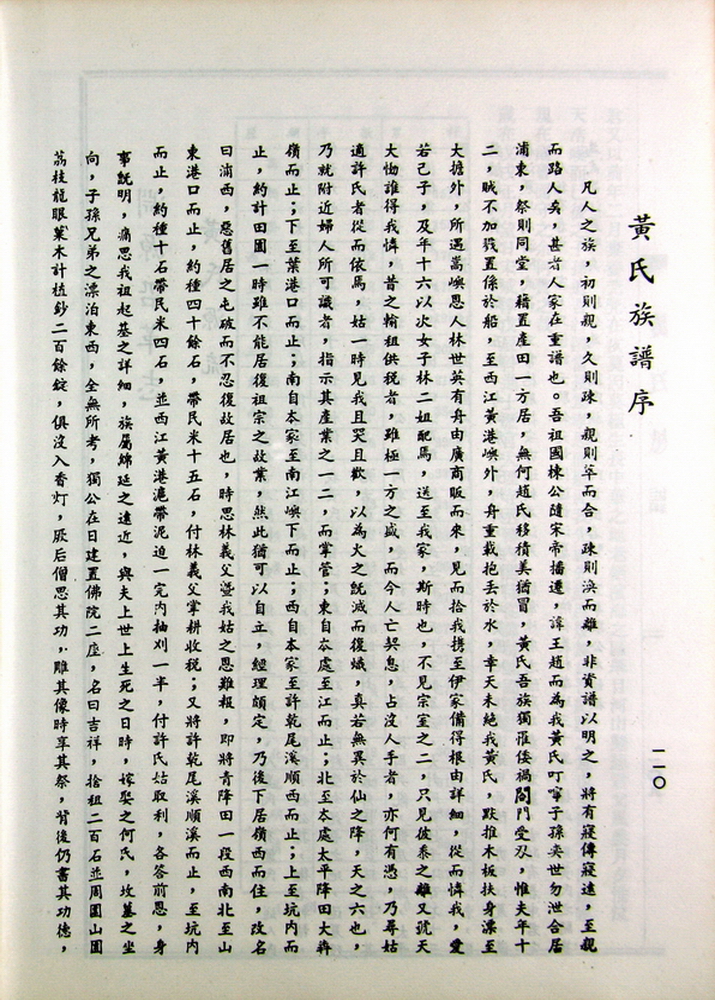 黃氏族譜序
凡人之族，初則親，久則疎，親則萃而合，疎則渙而離，非資譜以明之，將有寢傳寢遠，至親
而路人矣，甚者人家在重譜也。吾祖國棟公隨宋帝播遷，諱王趙而為我黃氏叮寧子孫奕世勿泄合居
浦東，祭則同堂，籍置產田一方居，無何趙氏移積美猶冒，黃氏吾族獨罹倭禍闔門受刃，惟夫年十
二，賊不加戮置係於船，至西江黃港嶼外，舟重載抱丟於水，幸天未絕我黃氏，默推木板扶身漂至
大擔外，所遇嵩嶼恩人林世英有舟由廣商販而來，見而拾我携至伊家備得根由詳細，從而憐我，愛
若己子，及年十六以次女子林二姐配焉，送至我家，斯時也，不見宗室之二，只見彼黍之離又號天
大慟誰得我憐，昔之輸租供稅者，雖極一方之盛，而今人亡契息，占沒人手者，亦何有憑，乃尋姑
適許氏者從而依焉，姑一時見我且哭且歡，以為火之既滅而復熾，真若無異於仙之降，天之六也，
乃就附近婦人所可識者，指示其產業之一二，而掌管；東自本處至江而止；北至本處太平降田大犇
嶺而止；下至葉港口而止；南自本家至南江嶼下而止；西自本家至許乾尾溪順西而止；上至坑內而
止，約計田園一時雖不能居復祖宗之故業，然此猶可以自立，經理頗定，乃後下居嶺西而住，改名
曰浦西，惡舊居之屯破而不忍復故居也，時思林義父暨我姑之恩難報，即將青降田一段西南北至山
東港口而止，約種四十餘石，帶民米十五石，付林義父掌耕收稅；又將許乾尾溪順溪而止，至坑內
而止，約種十石帶民米四石，並西江黃港滬帶泥迫一完內抽刈一半，付許氏姑取利，各答前恩，身
事既明，痛思我祖起基之詳細，族屬綿延之遠近，與夫上世上生死之日時，嫁娶之何氏，坟墓之坐
向，子孫兄弟之漂泊東西，全無所考，獨公在日建置佛院二座，名曰吉祥，捨租二百石並周圍山園
荔枝龍眼菓木計植鈔二百餘錠，俱沒入香灯，厥后僧思其功，雕其像時享其祭，背後仍書其功德，
一一〇